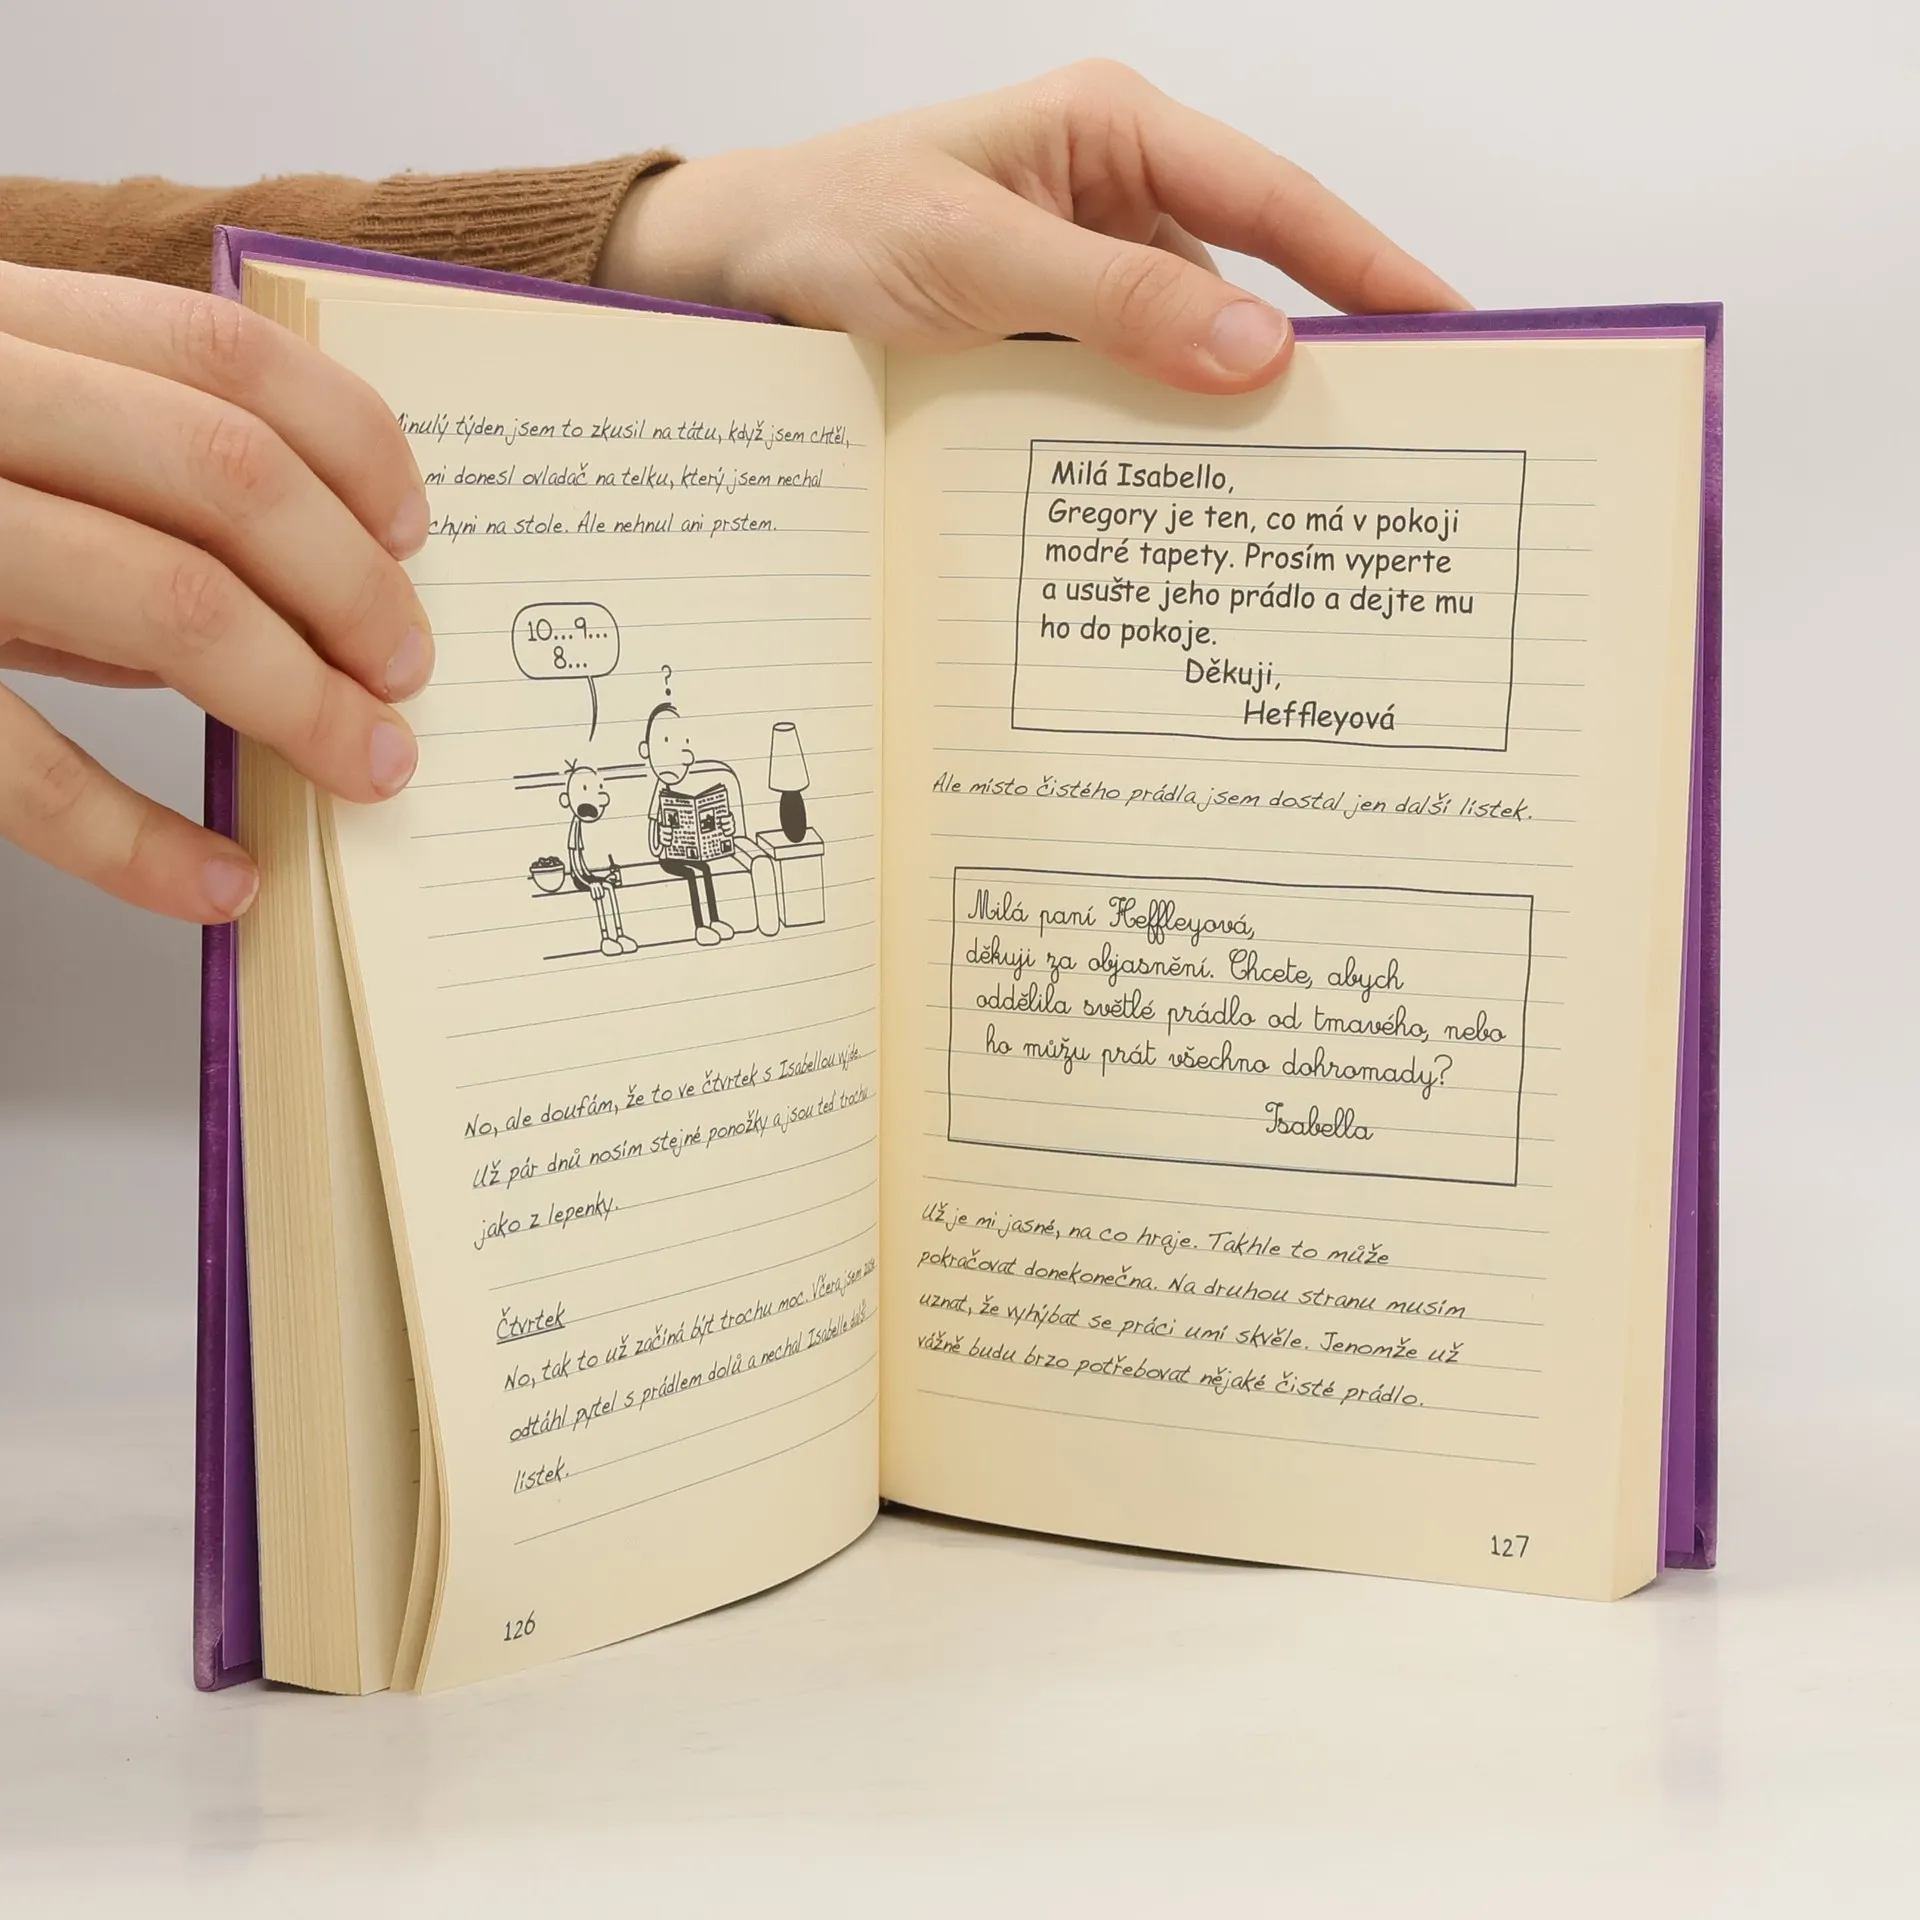 týden jsem to zkusil na tátu, když jsem chtěl,
mi donesl ovladač na telku, který jsem nechal
na stole. Ale nehnul ani prstem.
10...9...
8...
?
No, ale doufám, že to ve čtvrtek s Isabellou vyjde.
Už pár dnů nosím stejné ponožky a jsou teď trochu
jako z lepenky.
Čtvrtek
No, tak to už začíná být trochu moc. Včera jsem
odtáhl pytel s prádlem dolů a nechal Isabelle další
lístek.
126
Milá Isabello,
Gregory je ten, co má v pokoji
modré tapety. Prosím vyperte
a usušte jeho prádlo a dejte mu
ho do pokoje.
Děkuji,
Heffleyová
Ale místo čistého prádla jsem dostal jen další lístek.
Milá paní Heffleyová,
děkuji za objasnění. Chcete, abych
oddělila světlé prádlo od tmavého, nebo
ho můžu prát všechno dohromady?
Isabella
Už je mi jasné, na co hraje. Takhle to může
pokračovat donekonečna. Na druhou stranu musím
uznat, že vyhýbat se práci umí skvěle. Jenomže už
vážně budu brzo potřebovat nějaké čisté prádlo.
127